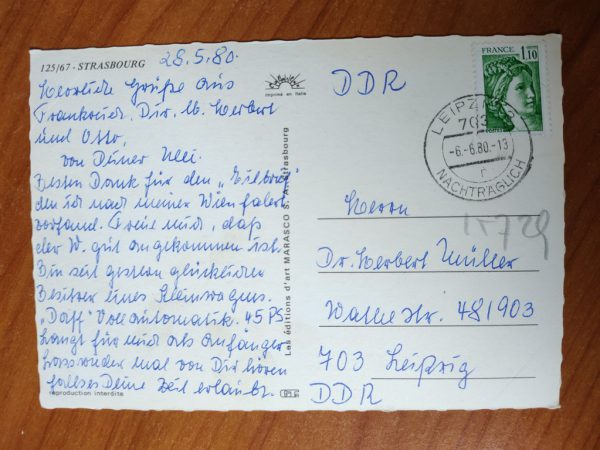 125/67 - STRASBOURG
28.5.80.
Herzliche Grüße aus
Frankreich. Dir, lb. Herbert
und Otto,
von Deiner
Besten Dank für den „Eilbrief"
den ich nach meiner Wienfahrt
vorfand. Freue mich, daß
der W. gut angekommen ist.
Bin seit gestern glücklicher
Besitzer eines Kleinwagens.
„Daff" Vollautomatik. 45 PS
Langt für mich als Anfänger
Lass wieder mal von Dir hören
falls es Deine Zeit erlaubt.
reproduction interdite
imprimé en Italie
Les éditions d'art MARASCO S. A. Strasbourg
DDR
FRANCE 1,10
POSTES
LEIPZIG
703
-6.-6.80.-13
r
NACHTRÄGLICH
Herrn
Dr. Herbert Müller
Str. 481903
703 Leipzig
DDR